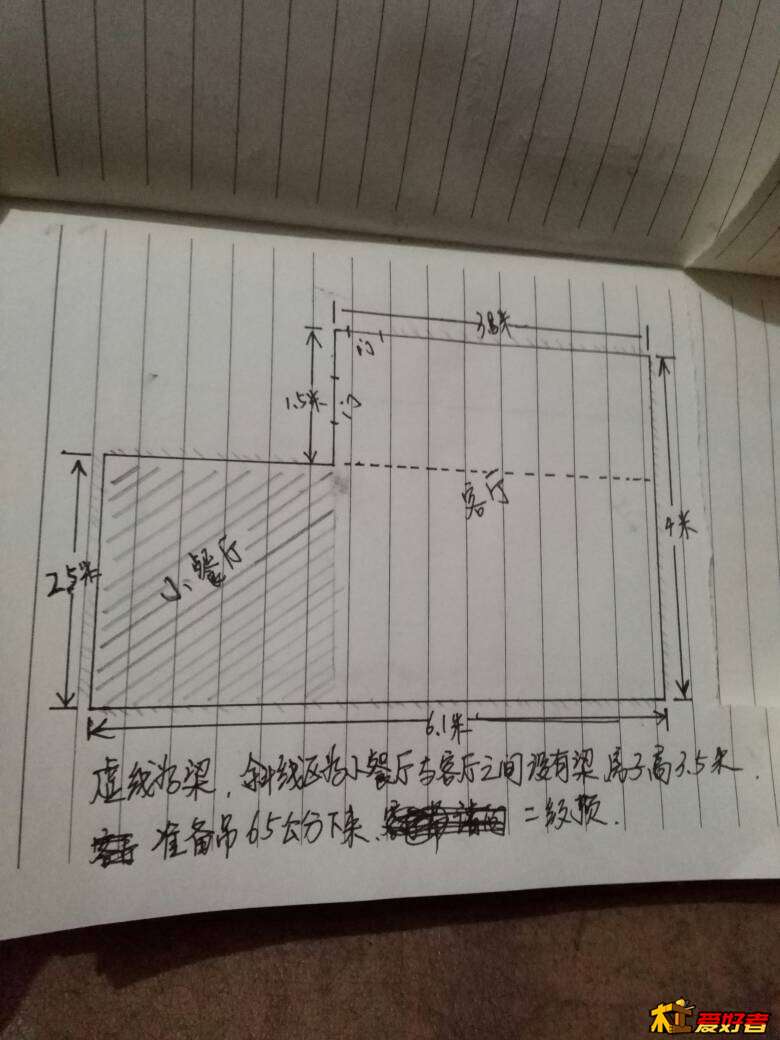 3.8米
门
1.5米
门
客厅
2.5米
小餐厅
4米
6.1米
虚线为梁,斜线区为小餐厅与客厅之间没有梁,房子高3.5米.
准备吊65公分下来、二级顶.
爱好者